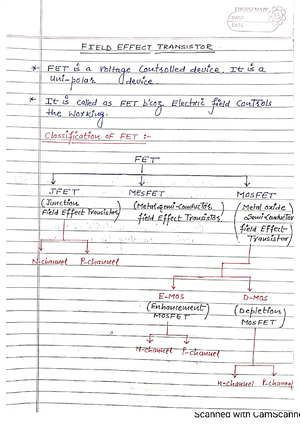 PAGE
DATE
FIELD EFFECT TRANSISTOR
* FET is a voltage controlled device. It is a
uni-polar device.
* It is called as FET b'coz Electric field controls
the working.
Classification of FET :-
FET
JFET MESFET MOSFET
(Junction
Field Effect Transistor)
(Metal semi-conductor
field Effect Transistor)
(Metal oxide
semi-conductor
field Effect
Transistor)
N-channel P-channel
E-MOS D-MOS
(Enhancement
MOSFET)
(Depletion
MOSFET)
N-channel P-channel
N-channel P-channel
Scanned with CamScanne